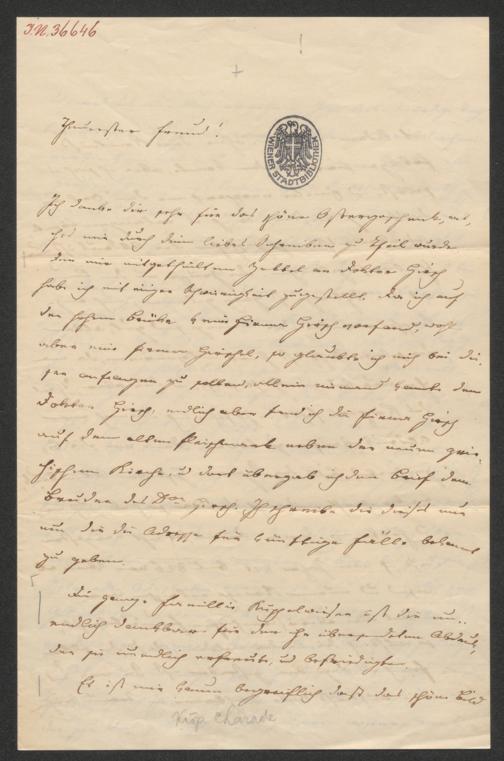 J.N. 36646
Theuerster Freund!
WIENER STADTBIBLIOTHEK
Ich danke dir sehr für das schöne Ostergeschenk, wel,
ches mir durch dein liebes Schreiben zu Theil wurde
Den mir mitgetheilten Zettel an Doktor Hirsch
habe ich mit einiger Schwierigkeit zugestellt. Da ich auf
der hohen Brücke keine Firma Hirsch vorfand, wohl
aber eine Firma Hirschel, so glaubte ich mich bei die,
ser anfragen zu sollen, allein niemand kannte den
Doktor Hirsch, endlich aber fand ich die Firma Hirsch
auf dem alten Fleischmarkt neben der neuen grie,
chischen Kirche, u dort übergab ich den Brief dem
Bruder des Dor Hirsch. Ich schreibe dir dieses nur
um dir die Adresse für künftige Fälle bekannt
zu geben.
Die ganze Familie Kuppelwieser ist dir un,,
endlich dankbar für den ihr übersendeten Abdruck,
der sie unendlich erfreute, u befriedigte.
Es ist mir kaum begreiflich daß das schöne Bild
Kup. Charade